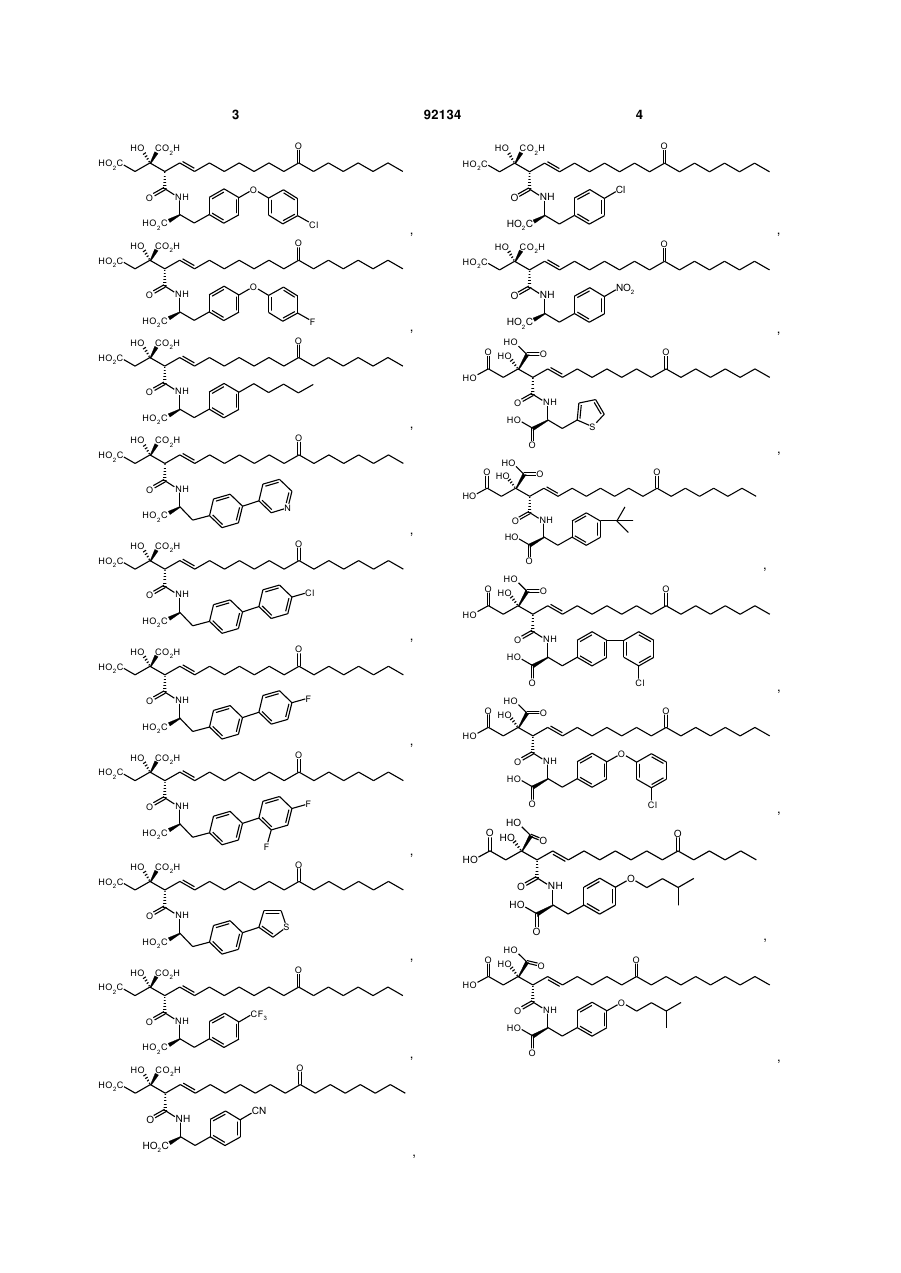 3 92134 4
HO CO2H O
HO2C
O NH O
HO2C Cl
,
HO CO2H O
HO2C
O NH O
HO2C F
,
HO CO2H O
HO2C
O NH
HO2C
,
HO CO2H O
HO2C
O NH
HO2C N
,
HO CO2H O
HO2C
O NH Cl
HO2C
,
HO CO2H O
HO2C
O NH F
HO2C
,
HO CO2H O
HO2C
O NH F
HO2C
F
,
HO CO2H O
HO2C
O NH S
HO2C
,
HO CO2H O
HO2C
O NH CF3
HO2C
,
HO CO2H O
HO2C
O NH CN
HO2C
,
HO CO2H O
HO2C
O NH Cl
HO2C
,
HO CO2H O
HO2C
O NH NO2
HO2C
,
HO
O HO O O
HO
O NH
HO S
O
,
HO
O HO O O
HO
O NH
HO
O
,
HO
O HO O O
HO
O NH
HO
O Cl
,
HO
O HO O O
HO
O NH O
HO
O Cl
,
HO
O HO O O
HO
O NH O
HO
O
,
HO
O HO O O
HO
O NH O
HO
O
,